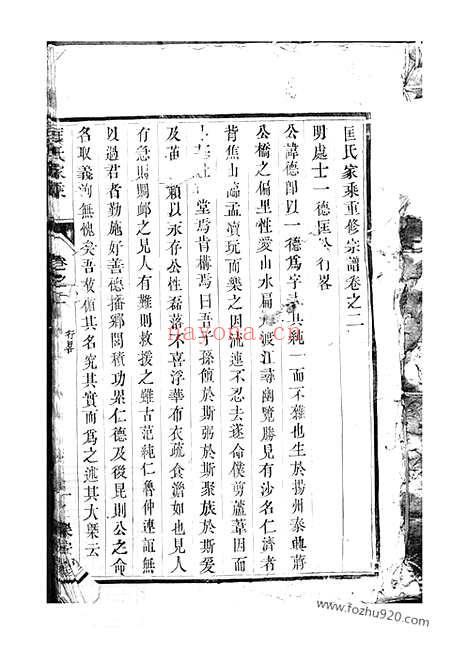 匡氏家乘重修宗譜卷之二
明處士一德匡公行畧
公諱德卽以一德爲字言其純一而不雜也生於揚州泰興蔣
公橋之偏里性愛山水扁舟渡江尋幽覽勝見有沙名仁濟者
背焦山面孟瀆玩而樂之因流連不忍去遂命僕剪蘆葦因而
堂焉肯構焉曰吾子孫饘於斯粥於斯聚族於斯爰
及苗 賴以永存公性磊落不喜浮華布衣疏食澹如也見人
有急賙賜䘏之見人有難則救援之雖古范純仁魯仲連誼無
以過君者勤施好善德播鄉閭積功累仁德及後昆則公之命
名取義洵無愧矣吾故循其名究其實而爲之述其大槩云
匡氏家乘
卷之二
行畧
一
樂
nayona.cn
www.fozhu920.com